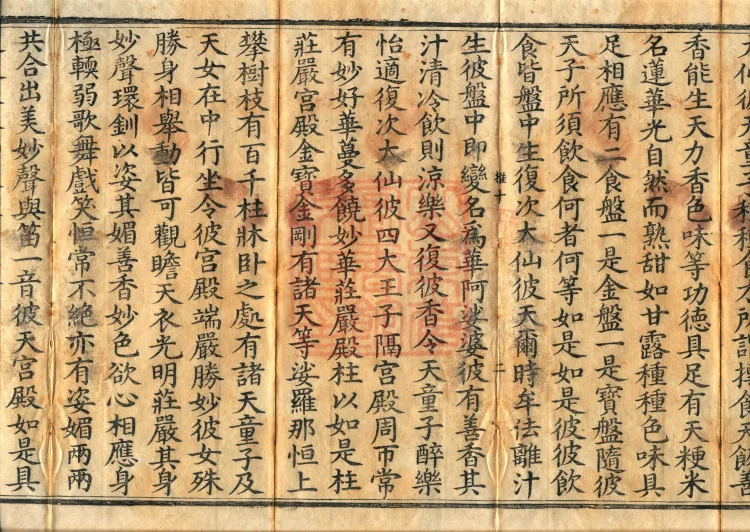 香能生天力香色味等功德具足有天粳米
名蓮華光自然而熟甜如甘露種種色味具
足相應有二食盤一是金盤一是寶盤隨彼
天子所須飲食何者何等如是如是彼彼飲
食皆盤中生復次大仙彼天爾時牟佉離汁
推十 二
生彼盤中即變名爲華阿娑婆彼有善香其
汁清冷飲則涼樂又復彼香令天童子醉樂
怡適復次大仙彼四大王子隔宮殿周帀常
有妙好華蔓多饒妙華莊嚴殿柱以如是柱
莊嚴宮殿金寶金剛有諸天等娑羅那恒上
攀樹枝有百千柱牀卧之處有諸天童子及
天女在中行坐令彼宮殿端嚴勝妙彼女殊
勝身相舉動皆可觀瞻天衣光明莊嚴其身
妙聲環釧以姿其媚善香妙色欲心相應身
極輭弱歌舞戲笑恒常不絶亦有姿媚兩兩
共合出美妙聲與笛一音彼天宮殿如是具